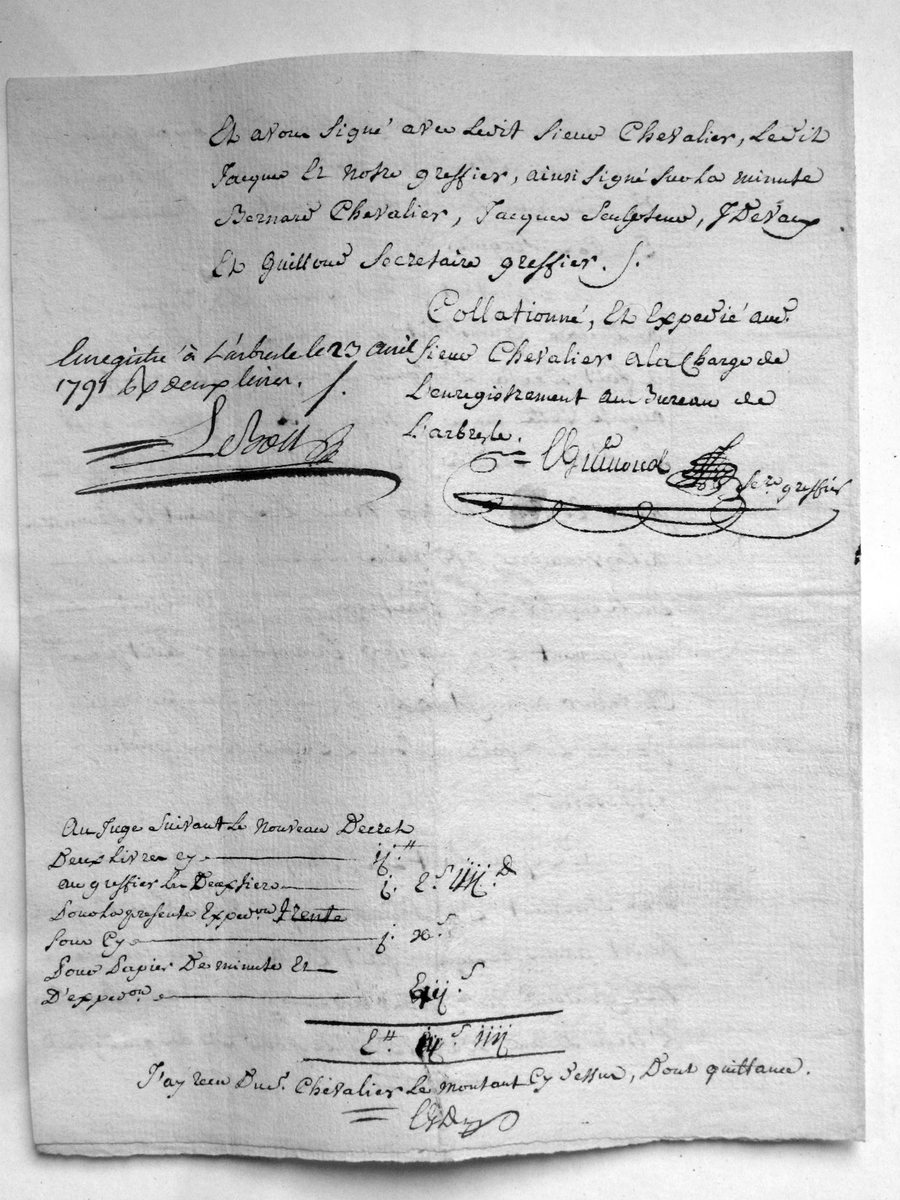 Et avons signé avec Ledit Sieur Chevalier, Ledit
Jacques Et notre greffier, ainsi signé sur La minute
Bernard Chevalier, Jacques Sculpteur, J Devaux
Et Guilloud Secretaire greffier. /.
Collationné, Et Expedié aud.
Sieur Chevalier a la Charge de
L'enregistrement au Bureau de
L'arbresle.
Guilloud Se.re greffier
Enregistré à L'arbresle le 23 avril
1791 deux livres.
Au Juge Suivant Le Nouveau Decret
Deux Livres cy ij.#
au greffier Les Deux tiers j.
Pour La presente Exped.on trente
Sous Cy j. x.s
Pour Papier De minute Et
D'exped.on
J'ay recu Du S. Chevalier Le montant Cy dessus, Dont quittance.